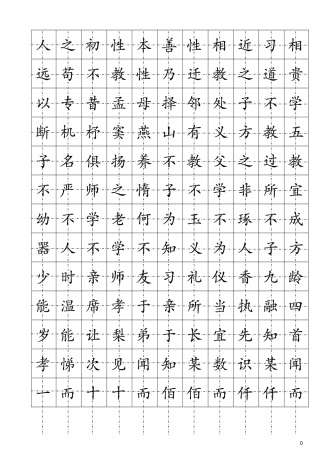 人之初性本善性相近习相
远苟不教性乃迁教之道贵
以专昔孟母择邻处子不学
断机杼窦燕山有义方教五
子名俱扬养不教父之过教
不严师之惰子不学非所宜
幼不学老何为玉不琢不成
器人不学不知义为人子方
少时亲师友习礼仪香九龄
能温席孝于亲所当执融四
岁能让梨弟于长宜先知首
孝悌次见闻知某数识某闻
一而十十而佰佰而仟仟而
0